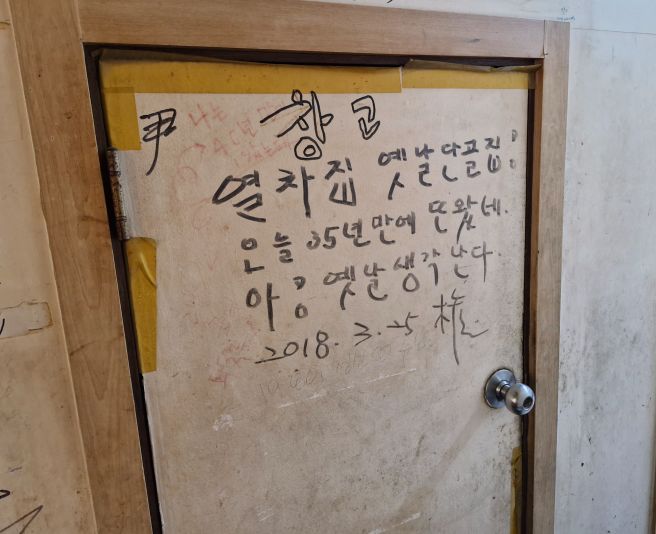 尹
창고
열차집 옛날단골집:
오늘 35년만에 또왔네.
아 옛날생각난다.
2018. 3. 25 權
나는